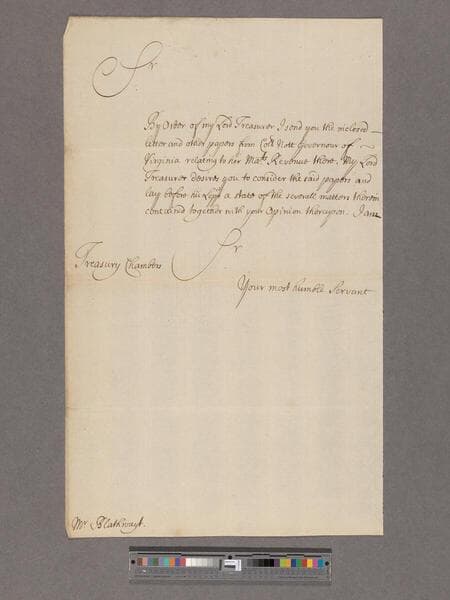 Sr
By Order of my Lord Treasurer I send you the inclosed
letter and other papers from Coll Nott Governour of
Virginia relating to her Mats Revenue there, My Lord
Treasurer desires you to consider the said papers and
lay before his Lopp a state of the severall matters therein
contained together with your Opinion thereupon. I am
Sr
Treasury Chambers
Your most humble Servant
Mr Blathwayt.